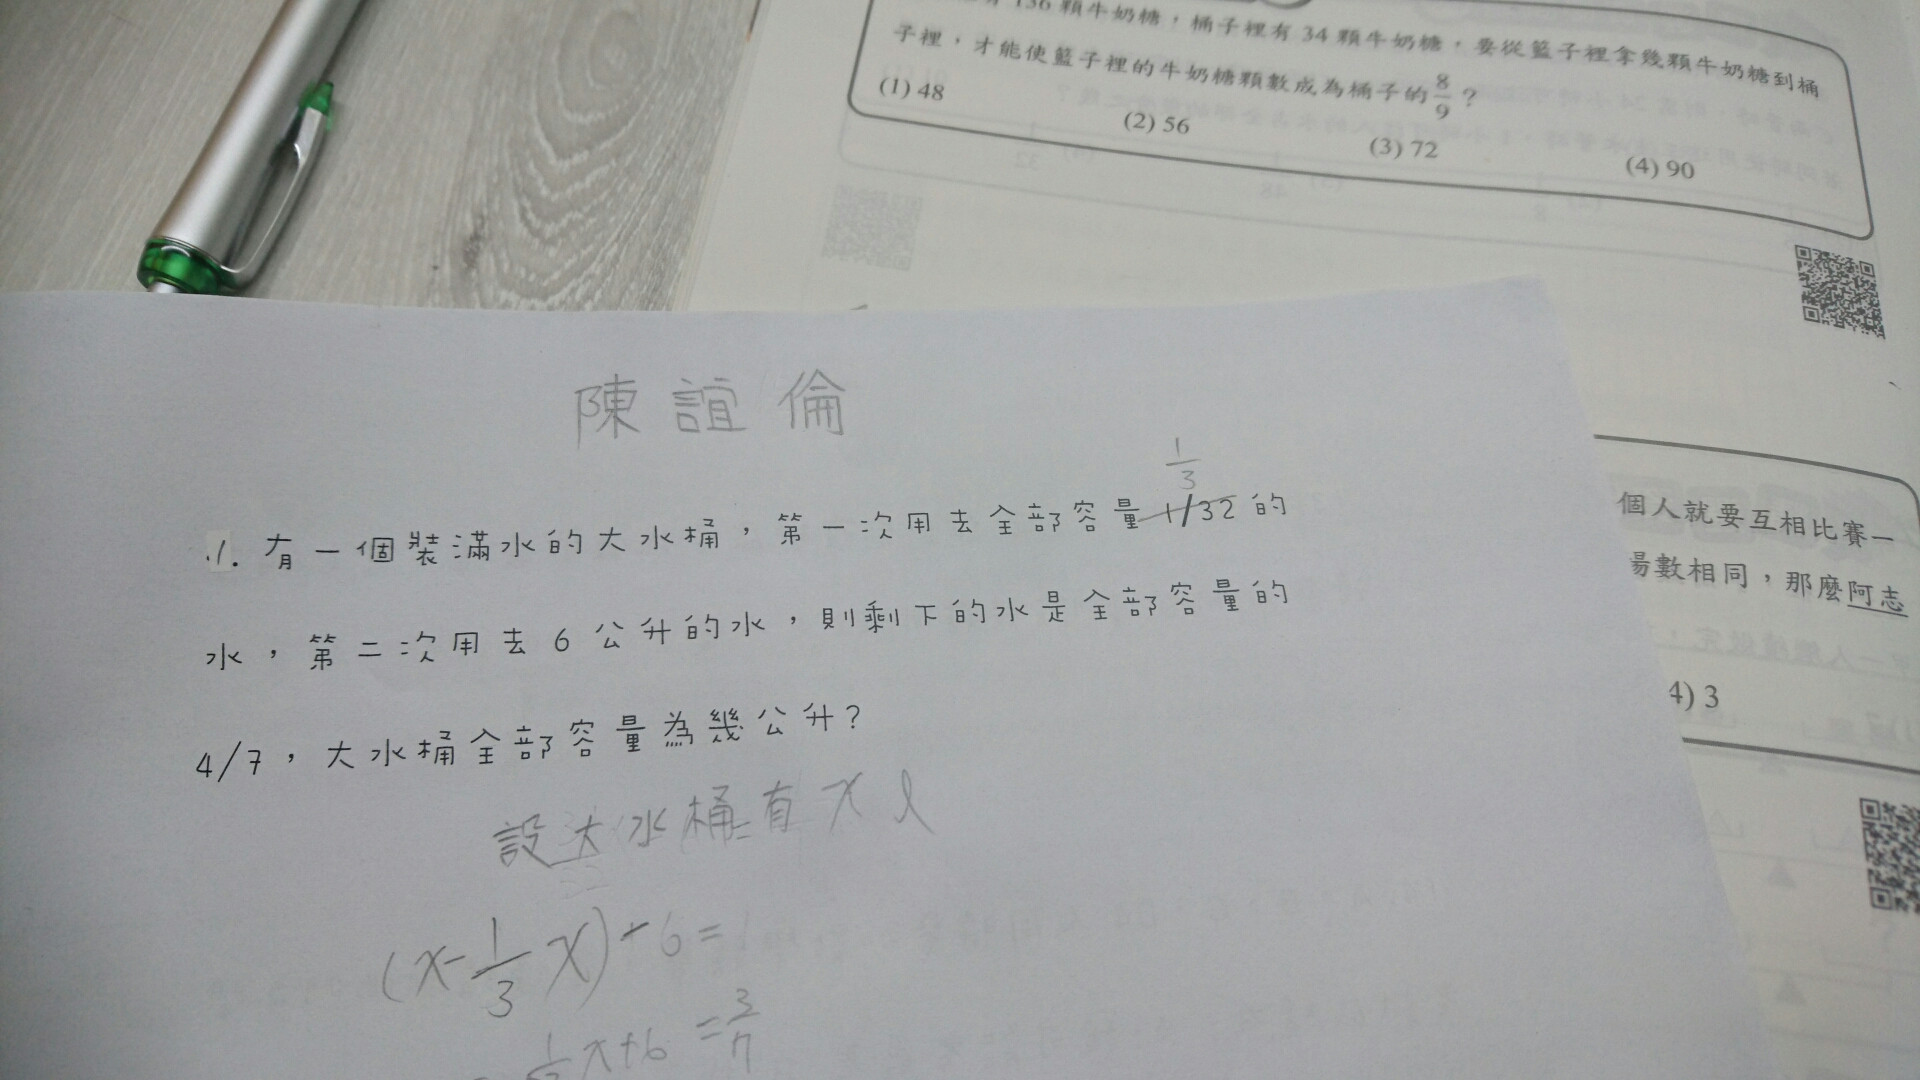 136 顆牛奶糖，桶子裡有 34 顆牛奶糖，要從籃子裡拿幾顆牛奶糖到桶
子裡，才能使籃子裡的牛奶糖顆數成為桶子的 8/9？
(1) 48 (2) 56 (3) 72 (4) 90
陳誼倫
1/3
1. 有一個裝滿水的大水桶，第一次用去全部容量 1/32 的
水，第二次用去 6 公升的水，則剩下的水是全部容量的
4/7，大水桶全部容量為幾公升？
設大水桶有 x ℓ
(x-1/3 x)-6=
x+6 =3/7
個人就要互相比賽一
場數相同，那麼阿志
4) 3